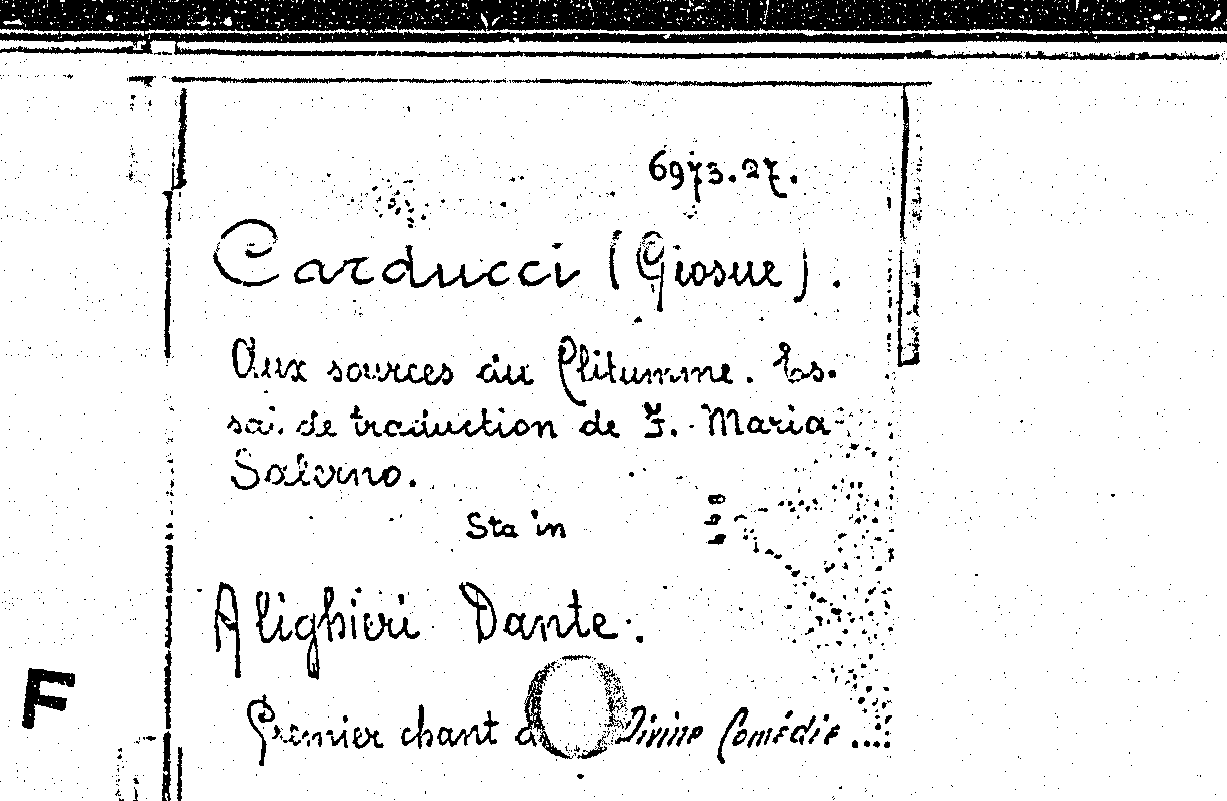 6973.27.
Carducci (Giosue).
Aux sources du Clitumne. Es-
sai de traduction de F. Maria
Salerno.
Sta in
Alighieri Dante.
F
Premier chant Divine Comédie ....